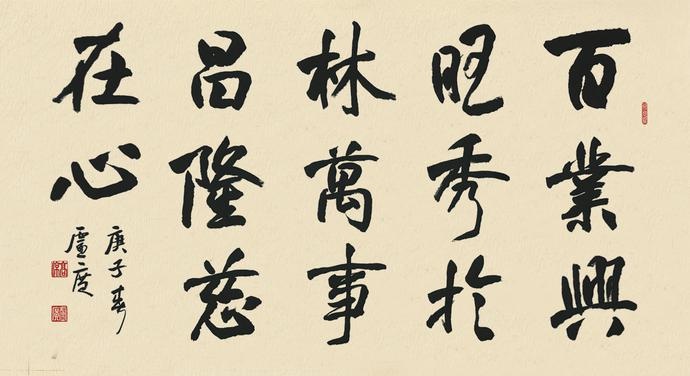 百業興
旺秀於
林萬事
昌隆慈
在心
庚子春
度